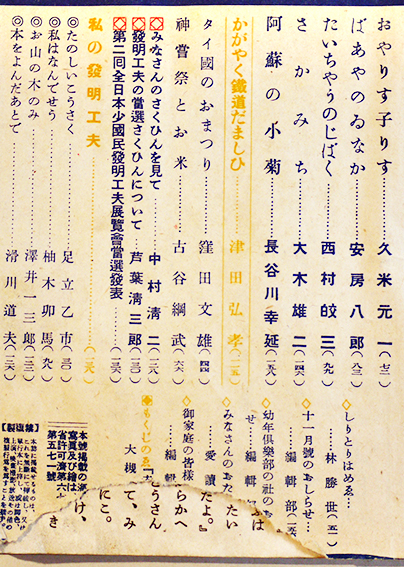 おやりす子りす………久米元一(七三)
ばあやのゐなか………安房八郎(八三)
たいちやうのじばく……西村皎三(九九)
さかみち………大木雄二(一四六)
阿蘇の小菊………長谷川幸延(一五八)
かがやく鐵道だましひ………津田弘孝(二五)
タイ國のおまつり………窪田文雄(四四)
神嘗祭とお米………古谷綱武(六六)
◇みなさんのさくひんを見て………中村淸二
◇發明工夫の當選さくひんについて……芦葉淸三郎
◇第二回全日本少國民發明工夫展覽會當選發表
私の發明工夫
◎たのしいこうさく………足立乙市
◎私はなんでせう………柚木卯馬
◎お山の木のみ………澤井一三郎
◎本をよんだあとで………滑川道夫
◇しりとりはめゑ…
……林勝世(五一)
◇十一月號のおしらせ…
……編輯部
◇幼年俱樂部の社の
せ……編輯
◇みなさんのおた
……愛讀
◇御家庭の皆樣
……編輯
◆もくじのゑ
大槻
は
たい
だよ。
らかへ
うさん
て、み
にこ。
け、
き
本號揭載の
寫眞及び繪は
省許可濟第六
第五七一號
【製複禁】